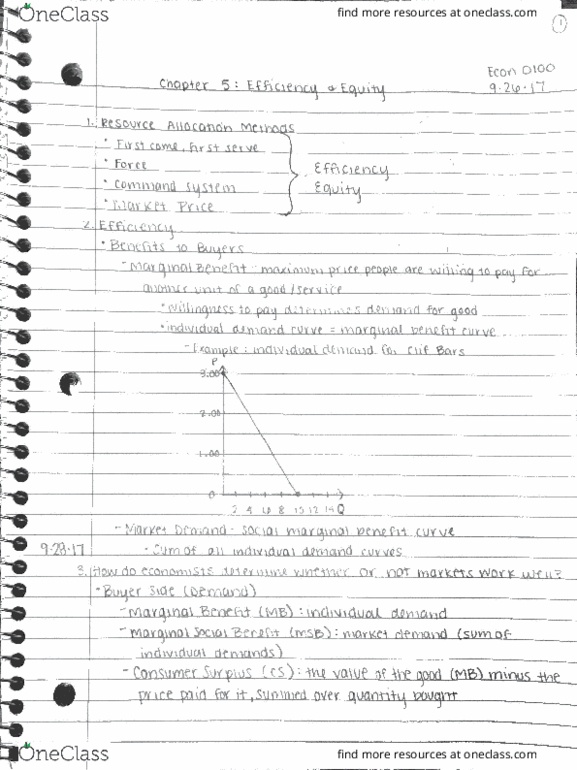 OneClass
find more resources at oneclass.com
1
Econ 0100
Chapter 5: Efficiency & Equity
9-26-17
1. Resource Allocation Methods
• First come, first serve
• Force
• Command system
• Market Price
Efficiency
Equity
2. Efficiency
• Benefits to Buyers
- Marginal Benefit - maximum price people are willing to pay for
another unit of a good/service
• willingness to pay determines demand for good
• individual demand curve = marginal benefit curve
- Example: individual demand for Clif Bars
P
3.00
2.00
1.00
0
2 4 6 8 10 12 14 Q
- Market Demand - social marginal benefit curve
9-28-17
- Sum of all individual demand curves
3. How do economists determine whether or not markets work well?
• Buyer Side (Demand)
- Marginal Benefit (MB): individual demand
- Marginal Social Benefit (MSB): market demand (sum of
individual demands)
- Consumer Surplus (CS): the value of the good (MB) minus the
price paid for it, summed over quantity bought
OneClass
find more resources at oneclass.com